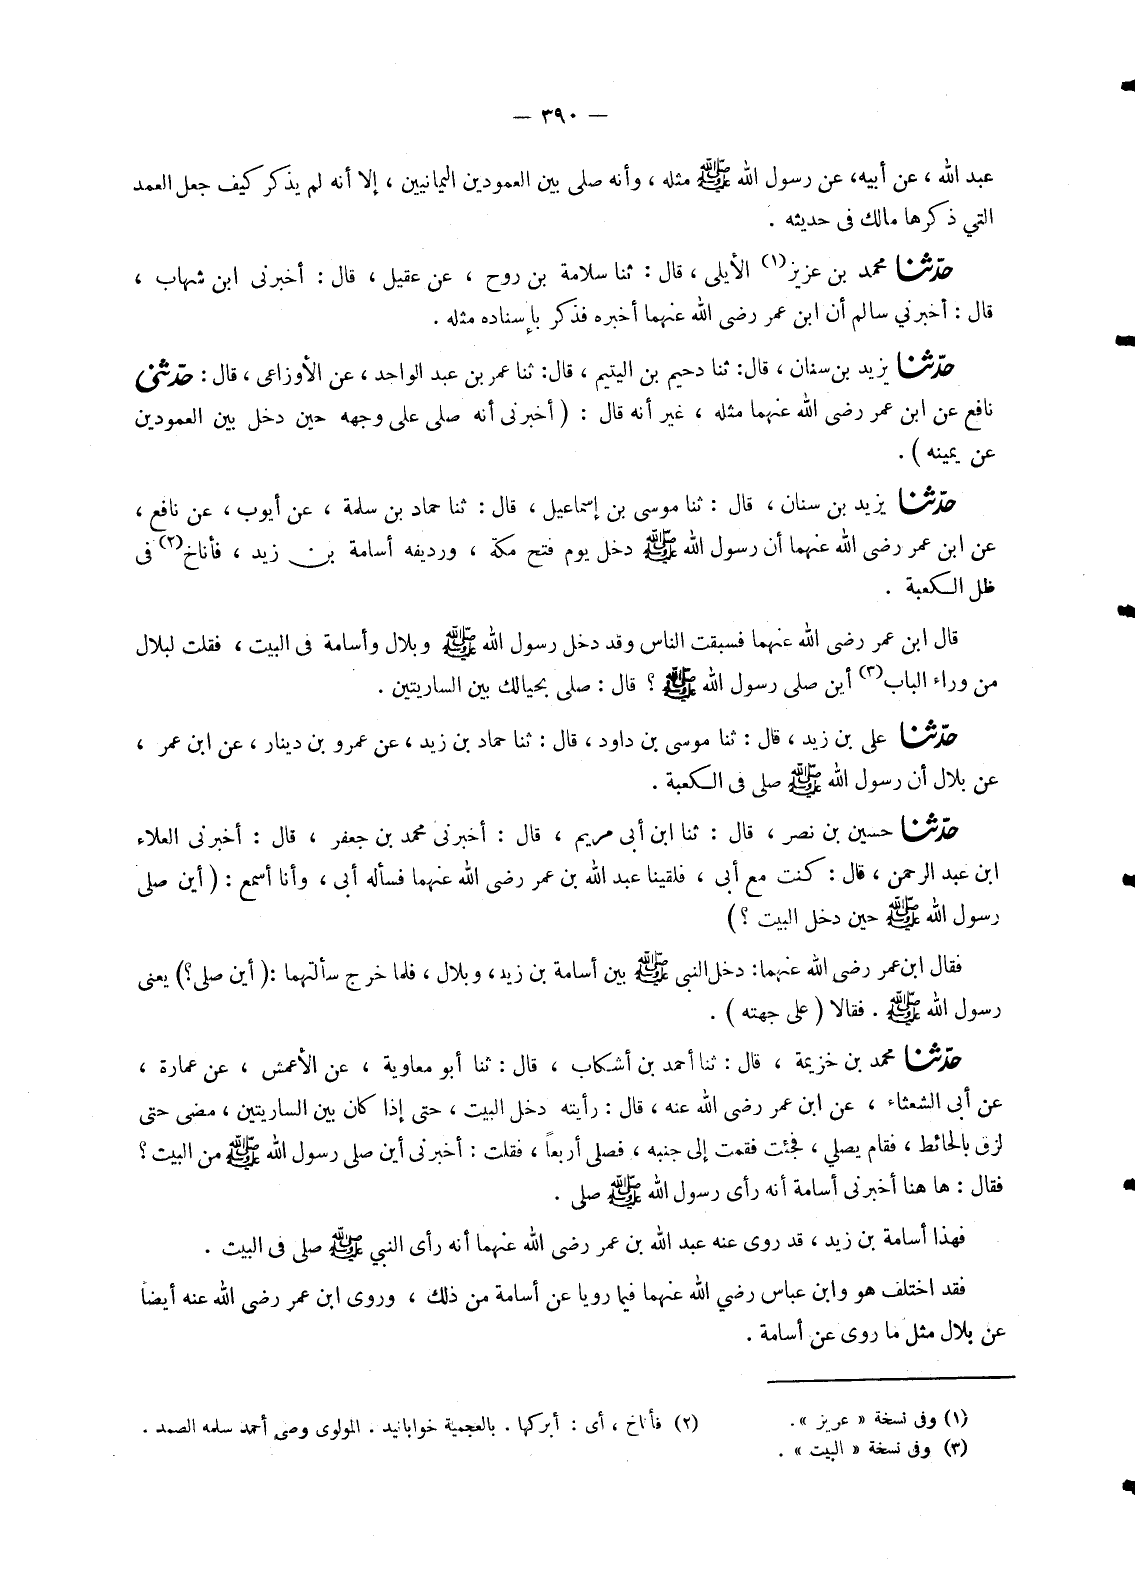 — ٣٩٠ —
عبد الله ، عن أبيه، عن رسول الله ﷺ مثله ، وأنه صلى بين العمودين اليمانيين ، إلا أنه لم يذكر كيف جعل العمد
التي ذكرها مالك فى حديثه .
حدّثنا محمد بن عزيز(١) الأيلى ، قال : ثنا سلامة بن روح ، عن عقيل ، قال : أخبرنى ابن شهاب ،
قال : أخبرني سالم أن ابن عمر رضى الله عنهما أخبره فذكر بإسناده مثله .
حدّثنا يزيد بن سنان ، قال: ثنا دحيم بن اليتيم ، قال: ثنا عمر بن عبد الواحد ، عن الأوزاعى ، قال : حدّثنى
نافع عن ابن عمر رضى الله عنهما مثله ، غير أنه قال : ( أخبرنى أنه صلى على وجهه حين دخل بين العمودين
عن يمينه ) .
حدّثنا يزيد بن سنان ، قال : ثنا موسى بن إسماعيل ، قال : ثنا حماد بن سلمة ، عن أيوب ، عن نافع ،
عن ابن عمر رضى الله عنهما أن رسول الله ﷺ دخل يوم فتح مكة ، ورديفه أسامة بن زيد ، فأناخ(٢) فى
ظل الكعبة .
قال ابن عمر رضى الله عنهما فسبقت الناس وقد دخل رسول الله ﷺ وبلال وأسامة فى البيت ، فقلت لبلال
من وراء الباب(٣) أين صلى رسول الله ﷺ ؟ قال : صلى بحيالك بين الساريتين .
حدّثنا على بن زيد ، قال : ثنا موسى بن داود ، قال : ثنا حماد بن زيد ، عن عمرو بن دينار ، عن ابن عمر ،
عن بلال أن رسول الله ﷺ صلى فى الكعبة .
حدّثنا حسين بن نصر ، قال : ثنا ابن أبى مريم ، قال : أخبرنى محمد بن جعفر ، قال : أخبرنى العلاء
ابن عبد الرحمن ، قال : كنت مع أبى ، فلقينا عبد الله بن عمر رضى الله عنهما فسأله أبى ، وأنا أسمع : ( أين صلى
رسول الله ﷺ حين دخل البيت ؟ )
فقال ابن عمر رضى الله عنهما: دخل النبى ﷺ بين أسامة بن زيد، وبلال ، فلما خرج سألتهما :( أين صلى؟) يعنى
رسول الله ﷺ . فقالا ( على جهته ) .
حدّثنا محمد بن خزيمة ، قال : ثنا أحمد بن أشكاب ، قال : ثنا أبو معاوية ، عن الأعمش ، عن عمارة ،
عن أبى الشعثاء ، عن ابن عمر رضى الله عنه ، قال : رأيته دخل البيت ، حتى إذا كان بين الساريتين ، مضى حتى
لزق بالحائط ، فقام يصلي ، فجئت فقمت إلى جنبه ، فصلى أربعاً ، فقلت : أخبرنى أين صلى رسول الله ﷺ من البيت ؟
فقال : ها هنا أخبرنى أسامة أنه رأى رسول الله ﷺ صلى .
فهذا أسامة بن زيد ، قد روى عنه عبد الله بن عمر رضى الله عنهما أنه رأى النبي ﷺ صلى فى البيت .
فقد اختلف هو وابن عباس رضي الله عنهما فيما رويا عن أسامة من ذلك ، وروى ابن عمر رضى الله عنه أيضاً
عن بلال مثل ما روى عن أسامة .
(١) وفى نسخة « عريز ». (٢) فأناخ ، أى : أبركها . بالعجمية خوابانيد . المولوى وصى أحمد سلمه الصمد .
(٣) وفى نسخة « البيت » .